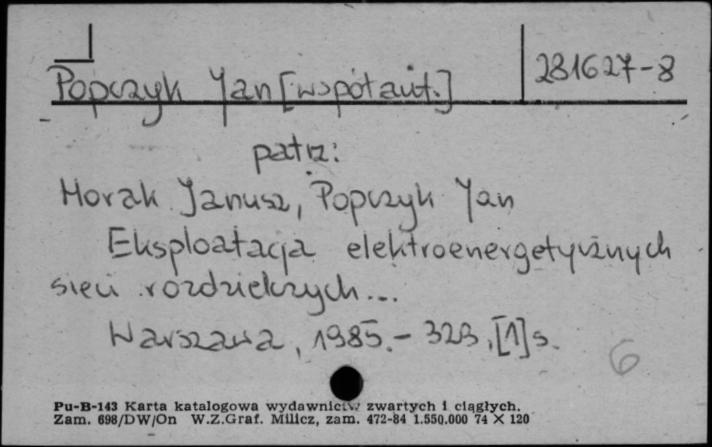 Popczyk Jan [współaut.]
281627-8
patrz:
Horak Janusz, Popczyk Jan
Eksploatacja elektroenergetycznych
sieci rozdzielczych...
Warszawa, 1985.- 323,[1]s.
6
Pu-B-143 Karta katalogowa wydawnictw zwartych i ciągłych.
Zam. 698/DW/On W.Z.Graf. Milicz, zam. 472-84 1.550.000 74 X 120